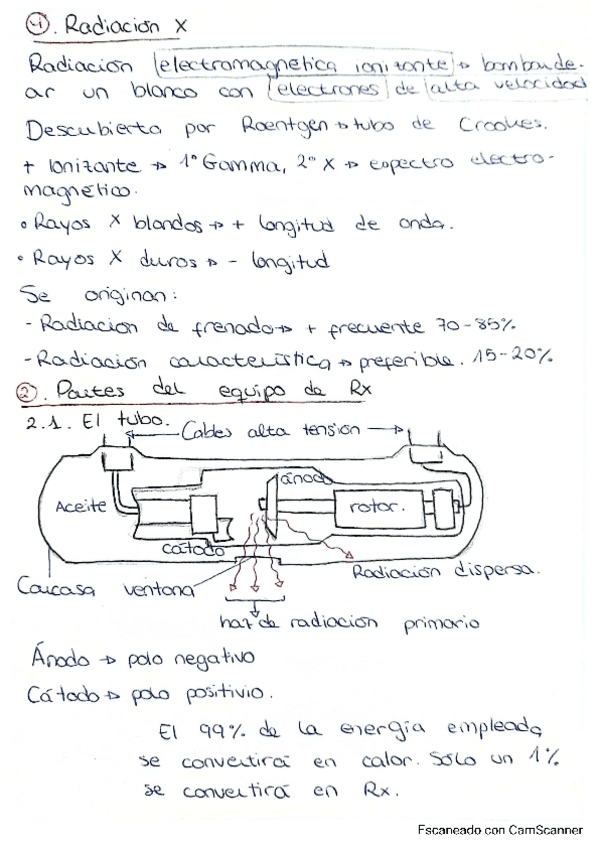 1. Radiación X
Radiación electromagnética ionizante → bombarde-
ar un blanco con electrones de alta velocidad
Descubierta por Roentgen → tubo de Crookes.
+ Ionizante → 1º Gamma, 2º X → espectro electro-
magnético.
• Rayos X blandos → + longitud de onda.
• Rayos X duros → - longitud
Se originan:
- Radiación de frenado → + frecuente 70-85%
- Radiación característica → preferible. 15-20%
2. Partes del equipo de Rx
2.1. El tubo.
Cables alta tensión
ánodo
Aceite
rotor.
cátodo
Radiación dispersa.
Carcasa ventana
haz de radiación primario
Ánodo → polo negativo
Cátodo → polo positivio.
El 99% de la energía empleada
se convertirá en calor. Sólo un 1%
se convertirá en Rx.
Escaneado con CamScanner